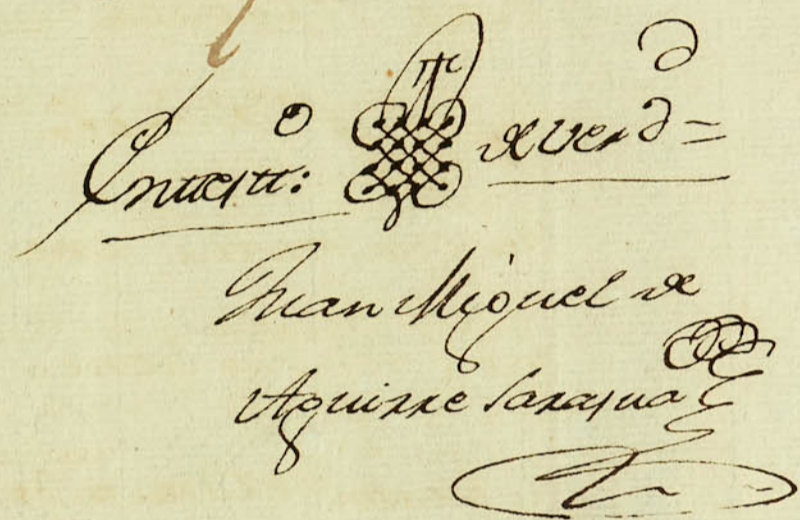 En testi:º de verd.ᵈ =
Juan Miguel de
Aguirre Sarasua